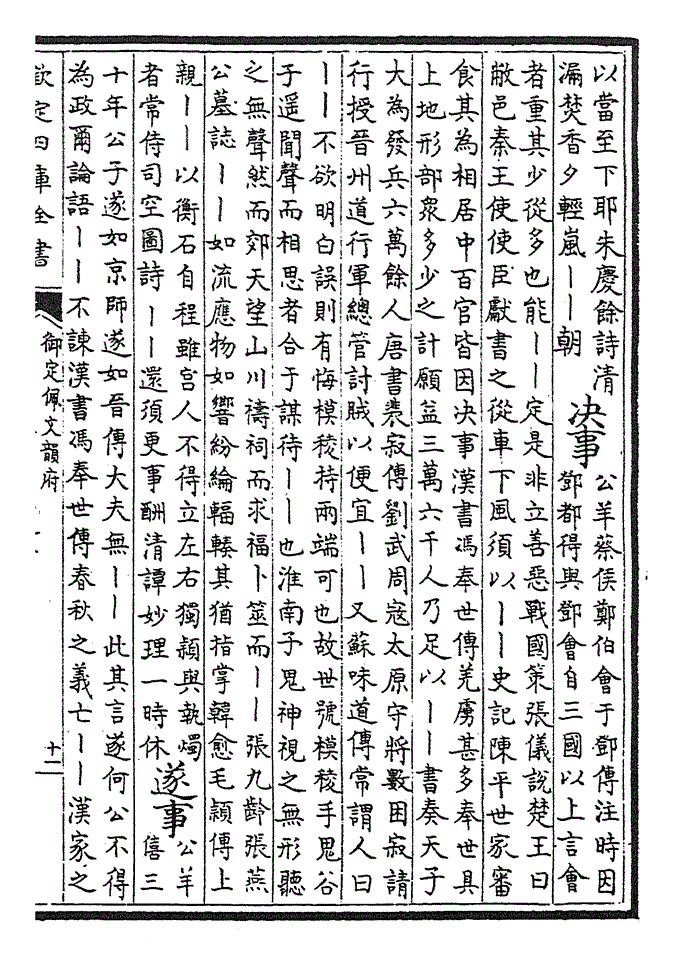 以當至下耶朱慶餘詩清
漏焚香夕輕嵐丨丨朝
决事
公羊蔡侯鄭伯會于鄧傳注時因
鄧都得與鄧會自三國以上言會
者重其少從多也能丨丨定是非立善惡戰國策張儀說楚王曰
敝邑秦王使使臣獻書之從車下風須以丨丨史記陳平世家審
食其為相居中百官皆因决事漢書馮奉世傳羌虜甚多奉世具
上地形部衆多少之計願益三萬六千人乃足以丨丨書奏天子
大為發兵六萬餘人唐書裴寂傳劉武周寇太原守將數困寂請
行授晉州道行軍總管討賊以便宜丨丨又蘇味道傳常謂人曰
丨丨不欲明白誤則有悔模稜持兩端可也故世號模稜手鬼谷
子遥聞聲而相思者合于謀待丨丨也淮南子鬼神視之無形聽
之無聲然而郊天望山川禱祠而求福卜筮而丨丨張九齡張燕
公墓誌丨丨如流應物如響紛綸輻輳其猶指掌韓愈毛穎傳上
親丨丨以衡石自程雖宫人不得立左右獨穎與執燭
者常侍司空圖詩丨丨還須更事酬清譚妙理一時休
遂事
公羊
僖三
十年公子遂如京師遂如晉傳大夫無丨丨此其言遂何公不得
為政爾論語丨丨不諫漢書馮奉世傳春秋之義亡丨丨漢家之
欽定四庫全書
御定佩文韻府
十二